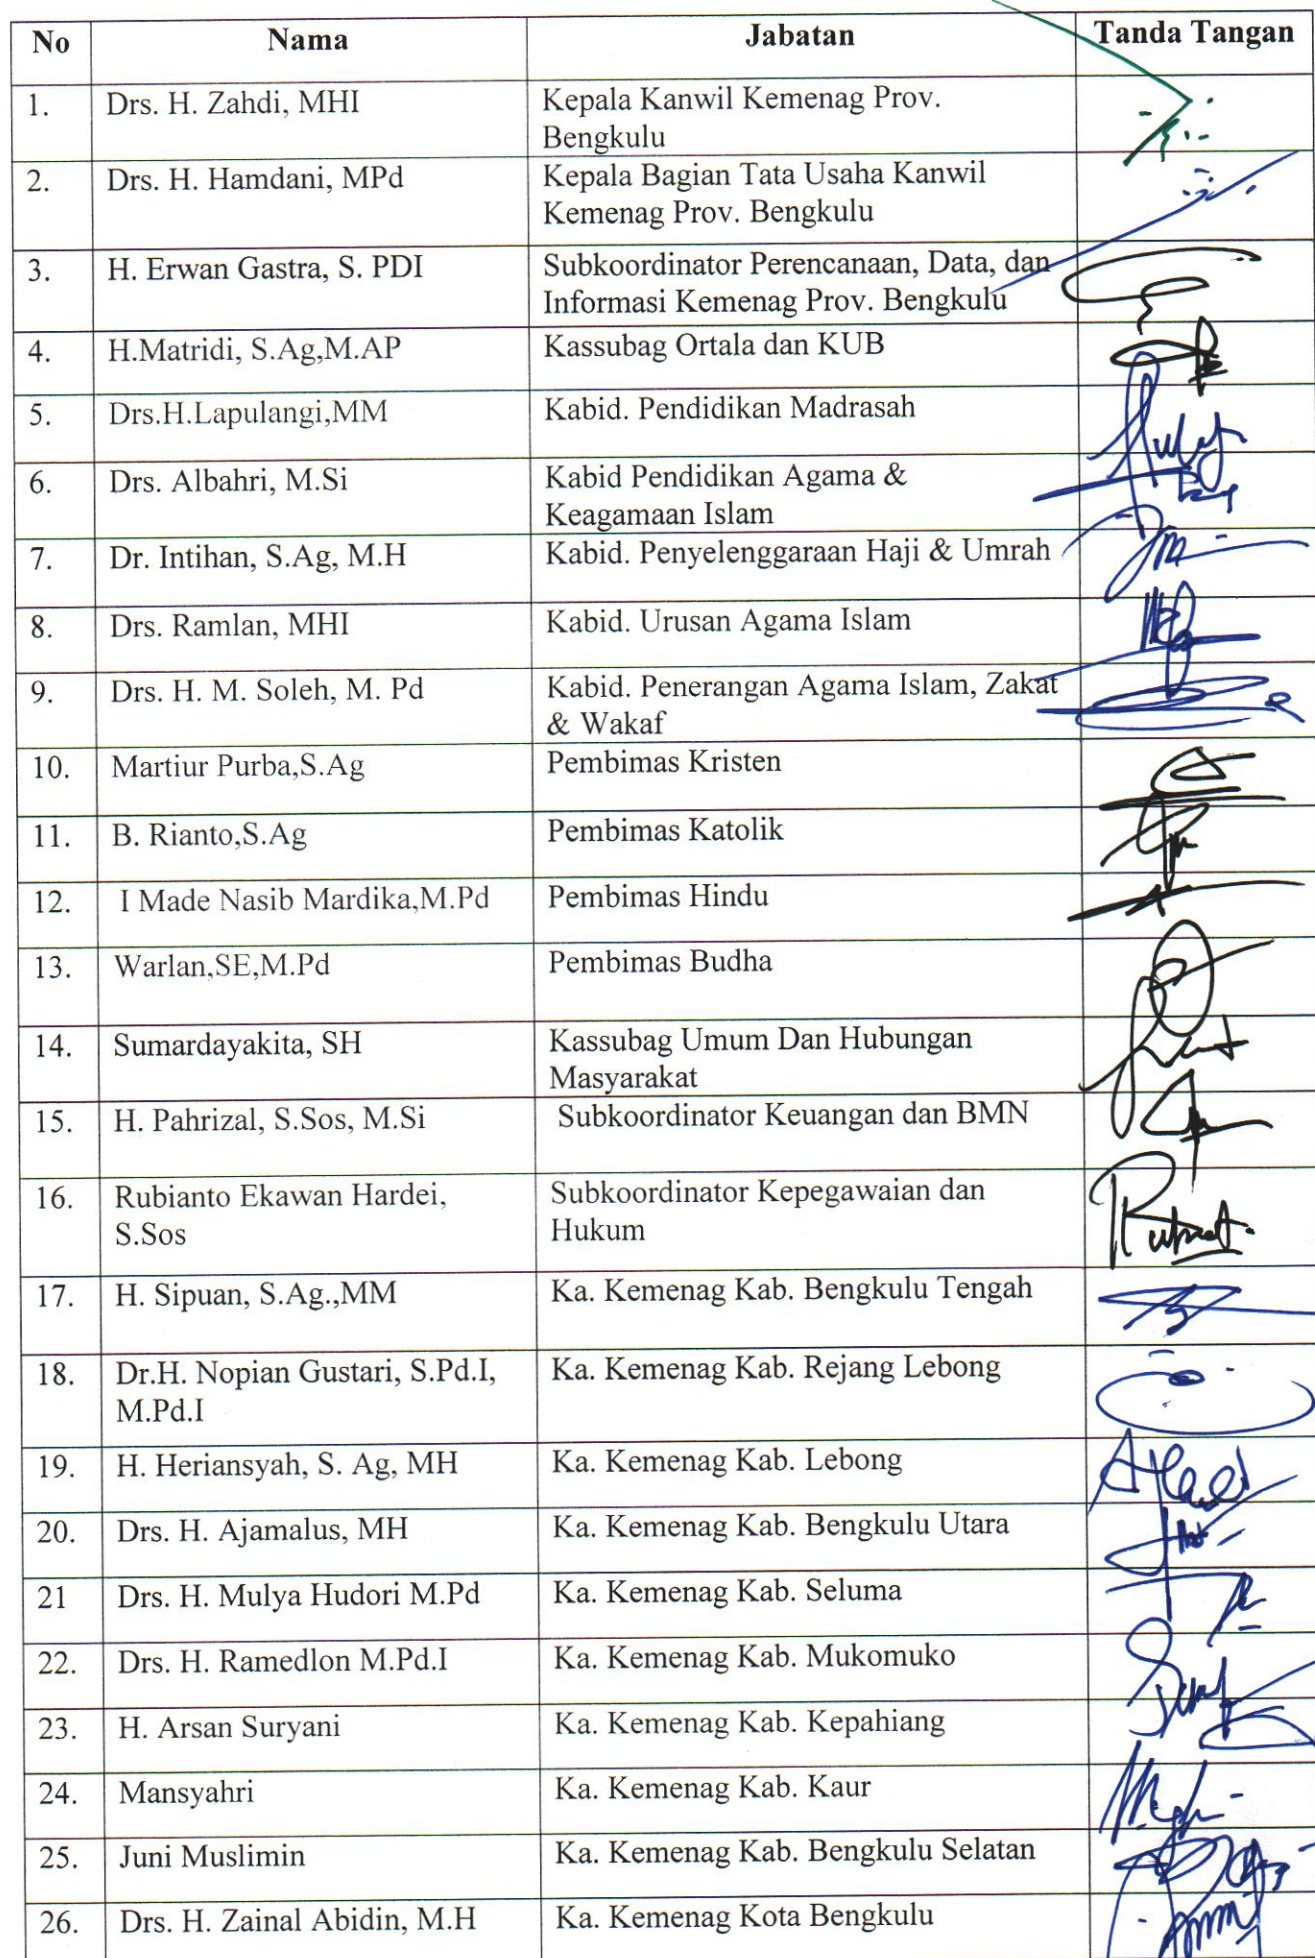 No Nama Jabatan Tanda Tangan
1. Drs. H. Zahdi, MHI Kepala Kanwil Kemenag Prov.
Bengkulu
2. Drs. H. Hamdani, MPd Kepala Bagian Tata Usaha Kanwil
Kemenag Prov. Bengkulu
3. H. Erwan Gastra, S. PDI Subkoordinator Perencanaan, Data, dan
Informasi Kemenag Prov. Bengkulu
4. H.Matridi, S.Ag,M.AP Kassubag Ortala dan KUB
5. Drs.H.Lapulangi,MM Kabid. Pendidikan Madrasah
6. Drs. Albahri, M.Si Kabid Pendidikan Agama &
Keagamaan Islam
7. Dr. Intihan, S.Ag, M.H Kabid. Penyelenggaraan Haji & Umrah
8. Drs. Ramlan, MHI Kabid. Urusan Agama Islam
9. Drs. H. M. Soleh, M. Pd Kabid. Penerangan Agama Islam, Zakat
& Wakaf
10. Martiur Purba,S.Ag Pembimas Kristen
11. B. Rianto,S.Ag Pembimas Katolik
12. I Made Nasib Mardika,M.Pd Pembimas Hindu
13. Warlan,SE,M.Pd Pembimas Budha
14. Sumardayakita, SH Kassubag Umum Dan Hubungan
Masyarakat
15. H. Pahrizal, S.Sos, M.Si Subkoordinator Keuangan dan BMN
16. Rubianto Ekawan Hardei, Subkoordinator Kepegawaian dan
S.Sos Hukum
17. H. Sipuan, S.Ag.,MM Ka. Kemenag Kab. Bengkulu Tengah
18. Dr.H. Nopian Gustari, S.Pd.I, Ka. Kemenag Kab. Rejang Lebong
M.Pd.I
19. H. Heriansyah, S. Ag, MH Ka. Kemenag Kab. Lebong
20. Drs. H. Ajamalus, MH Ka. Kemenag Kab. Bengkulu Utara
21 Drs. H. Mulya Hudori M.Pd Ka. Kemenag Kab. Seluma
22. Drs. H. Ramedlon M.Pd.I Ka. Kemenag Kab. Mukomuko
23. H. Arsan Suryani Ka. Kemenag Kab. Kepahiang
24. Mansyahri Ka. Kemenag Kab. Kaur
25. Juni Muslimin Ka. Kemenag Kab. Bengkulu Selatan
26. Drs. H. Zainal Abidin, M.H Ka. Kemenag Kota Bengkulu